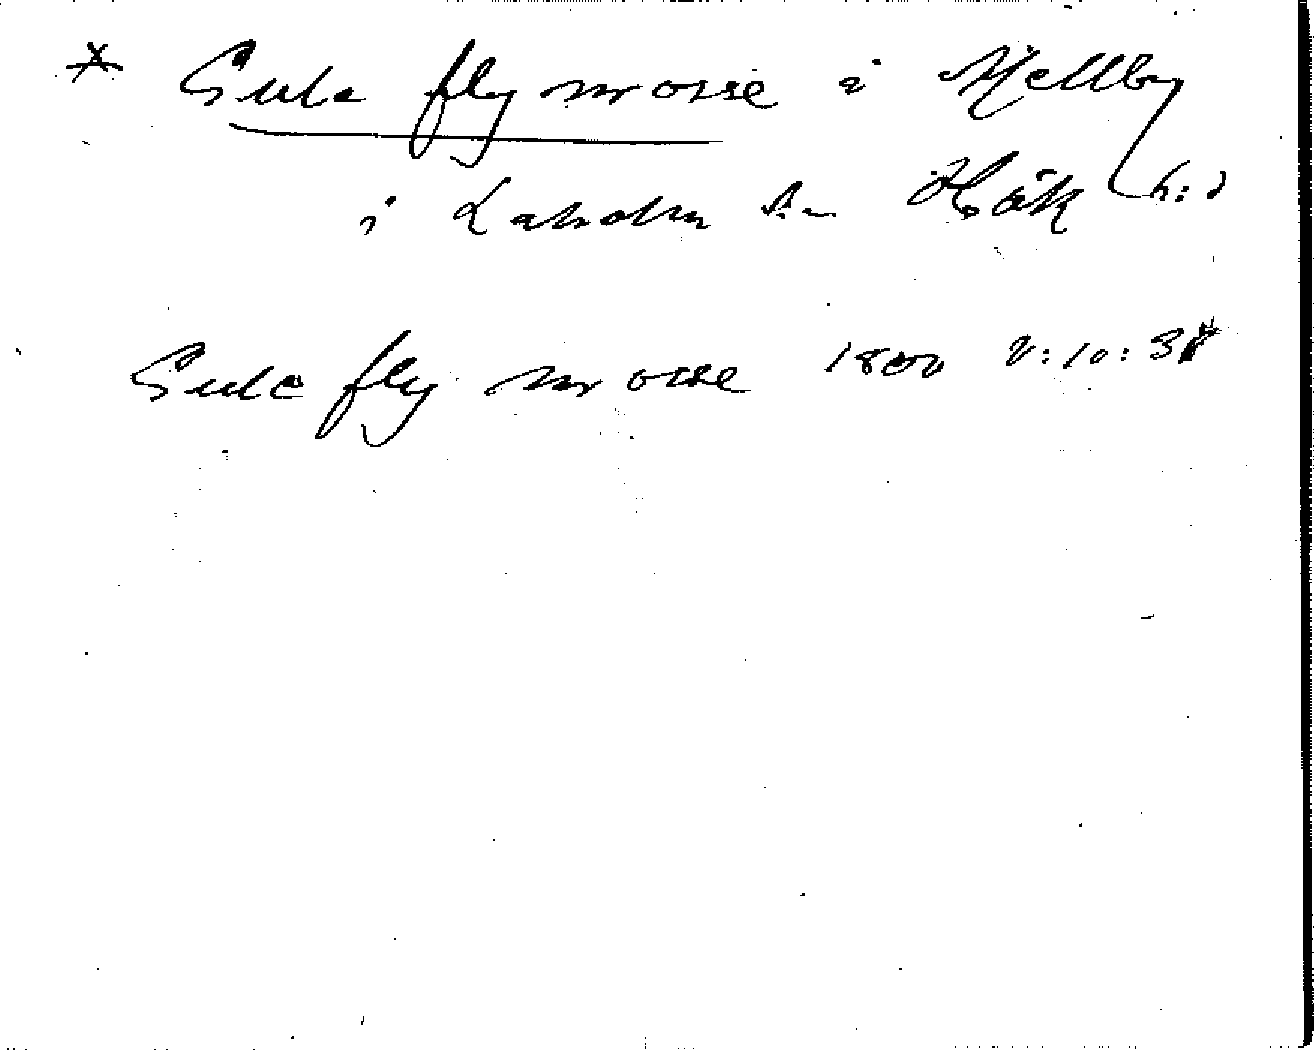 * Gule fly mosse i Mellby
i Laholm sn Hök h:d
Gule fly mosse 1800 V:10:38